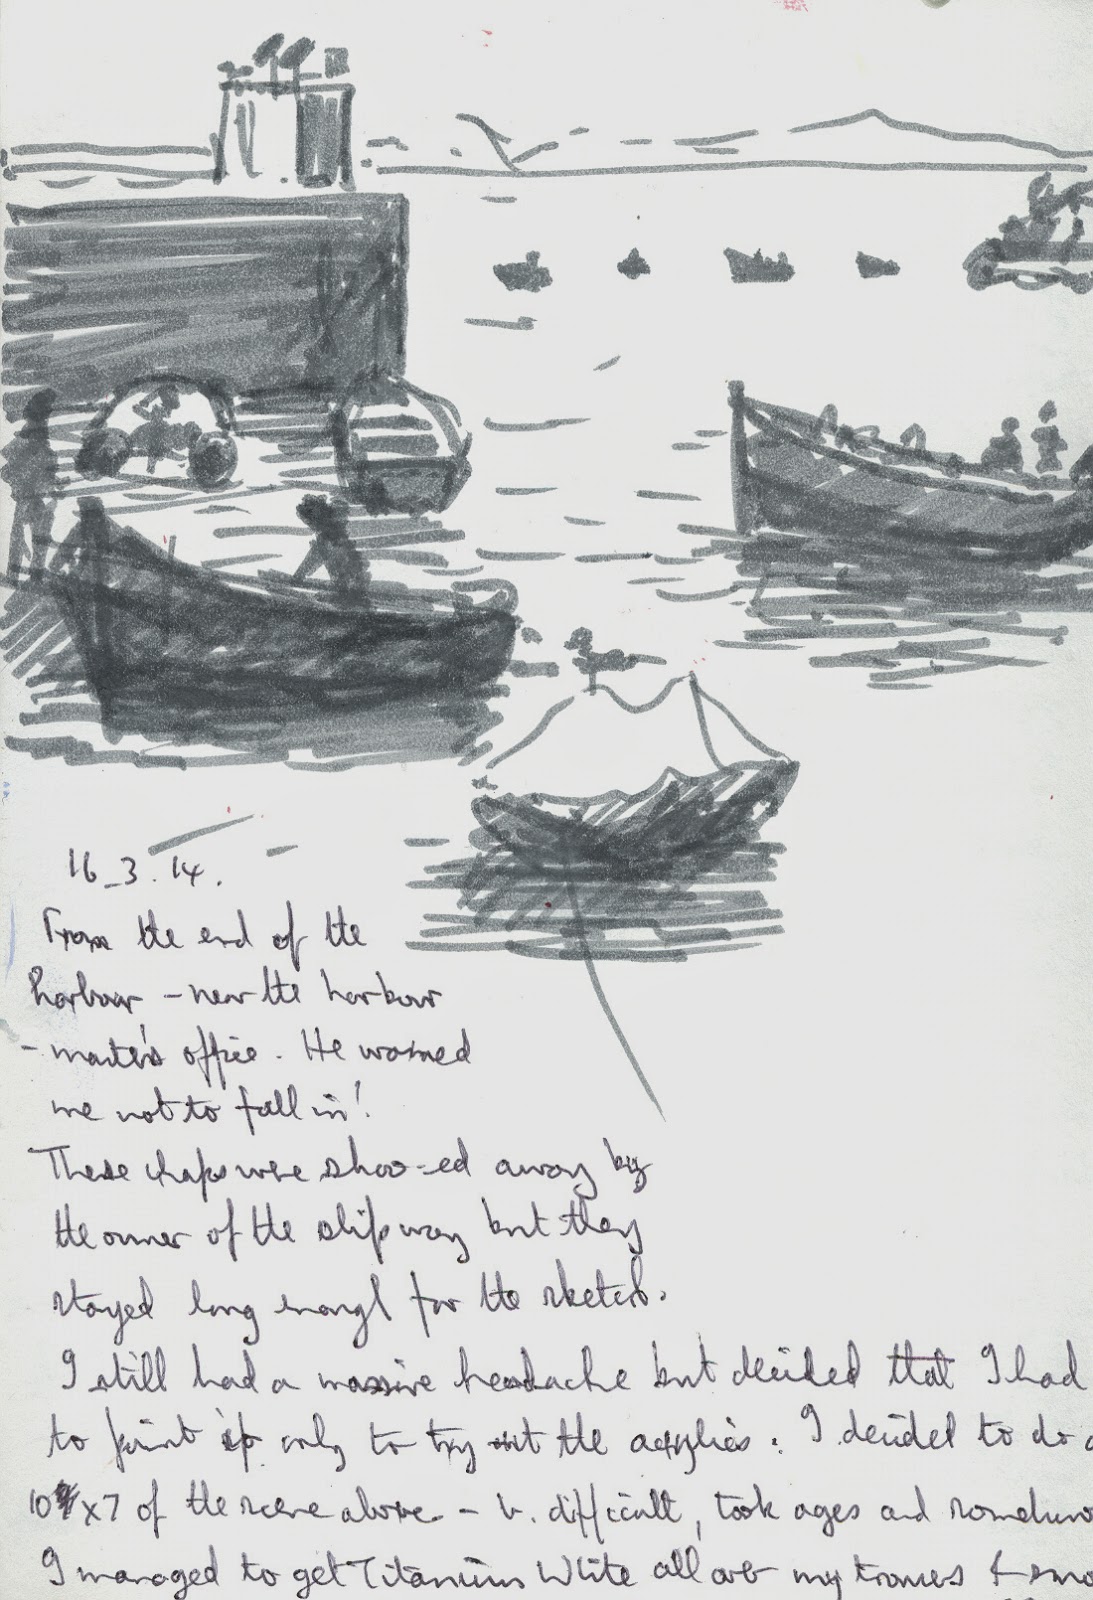 16.3.14.
From the end of the
harbour - near the harbour
- master's office. He warned
me not to fall in!
These chaps were shoo-ed away by
the owner of the slipway but they
stayed long enough for the sketch.
I still had a massive headache but decided that I had
to paint if only to try out the acrylics. I decided to do
10 x 7 of the scene above - v. difficult, took ages and somehow
I managed to get Titanium White all over my trousers &